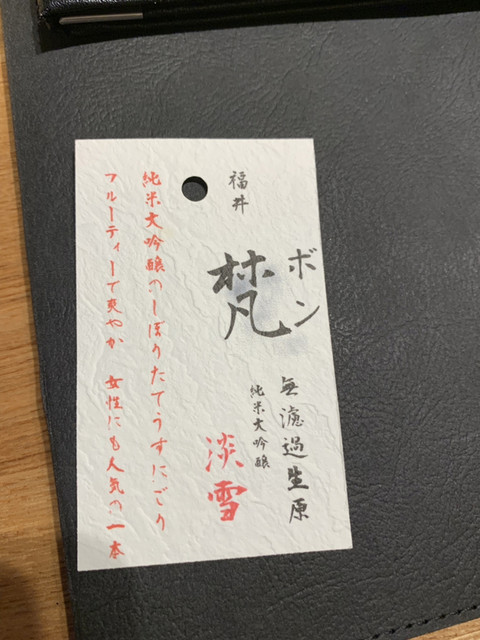 福井
ボン
梵
無濾過生原
純米大吟醸
淡雪
純米大吟醸のしぼりたてうすにごり
フルーティーで爽やか 女性にも人気の一本